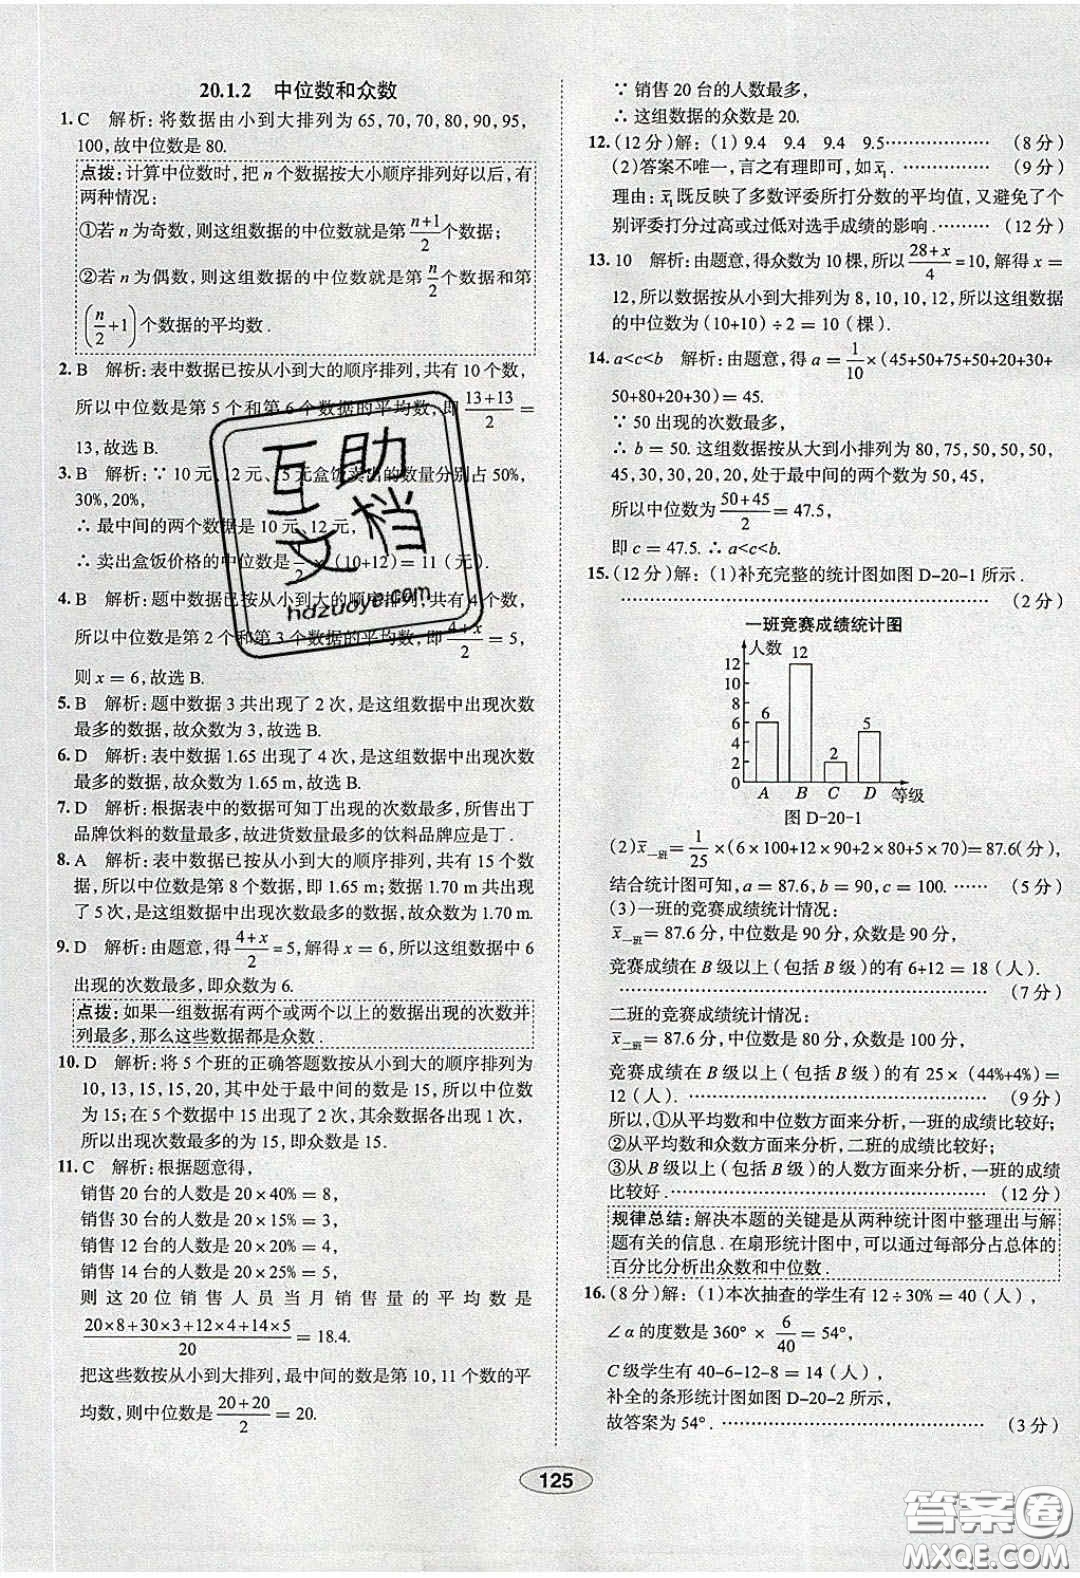 20.1.2 中位数和众数
1. C 解析:将数据由小到大排列为 65,70,70,80,90,95,
100,故中位数是 80.
点拨:计算中位数时,把 n 个数据按大小顺序排列好以后,有
两种情况:
①若 n 为奇数,则这组数据的中位数就是第 (n+1)/2 个数据;
②若 n 为偶数,则这组数据的中位数就是第 n/2 个数据和第
(n/2+1) 个数据的平均数.
2. B 解析:表中数据已按从小到大的顺序排列,共有 10 个数,
所以中位数是第 5 个和第 6 个数据的平均数,即 (13+13)/2 =
13,故选 B.
3. B 解析:∵ 10 元、12 元、15 元盒饭卖出的数量分别占 50%,
30%,20%,
∴ 最中间的两个数据是 10 元、12 元,
∴ 卖出盒饭价格的中位数是 1/2 ×(10+12)= 11(元).
4. B 解析:题中数据已按从小到大的顺序排列,共有 4 个数,
所以中位数是第 2 个和第 3 个数据的平均数,即 (4+x)/2 = 5,
则 x = 6,故选 B.
5. B 解析:题中数据 3 共出现了 2 次,是这组数据中出现次数
最多的数据,故众数为 3,故选 B.
6. D 解析:表中数据 1.65 出现了 4 次,是这组数据中出现次
数最多的数据,故众数为 1.65 m,故选 B.
7. D 解析:根据表中的数据可知丁出现的次数最多,所售出丁
品牌饮料的数量最多,故进货数量最多的饮料品牌应是丁.
8. A 解析:表中数据已按从小到大的顺序排列,共有 15 个数
据,所以中位数是第 8 个数据,即 1.65 m;数据 1.70 m 出现
了 5 次,是这组数据中出现次数最多的数据,故众数为 1.70 m.
9. D 解析:由题意,得 (4+x)/2 = 5,解得 x = 6,所以这组数据中 6
出现的次数最多,即众数为 6.
点拨:如果一组数据有两个或两个以上的数据出现的次数并
列最多,那么这些数据都是众数.
10. D 解析:将 5 个班的正确答题数按从小到大的顺序排列为
10,13,15,15,20,其中处于最中间的数是 15,所以中位数
为 15;在 5 个数据中 15 出现了 2 次,其余数据各出现 1 次,
所以出现次数最多的为 15,即众数是 15.
11. C 解析:根据题意得,
销售 20 台的人数是 20×40% = 8,
销售 30 台的人数是 20×15% = 3,
销售 12 台的人数是 20×20% = 4,
销售 14 台的人数是 20×25% = 5,
则这 20 位销售人员当月销售量的平均数是
(20×8+30×3+12×4+14×5)/20 = 18.4.
把这些数按从小到大排列,最中间的数是第 10,11 个数的平
均数,则中位数是 (20+20)/2 = 20.
∵ 销售 20 台的人数最多,
∴ 这组数据的众数是 20.
12. (12 分)解:(1)9.4 9.4 9.4 9.5 ……………… (8 分)
(2)答案不唯一,言之有理即可,如 x̄₁. ……………… (9 分)
理由:x̄₁既反映了多数评委所打分数的平均值,又避免了个
别评委打分过高或过低对选手成绩的影响. ……… (12 分)
13. 10 解析:由题意,得众数为 10 棵,所以 (28+x)/4 = 10,解得 x =
12,所以数据按从小到大排列为 8,10,10,12,所以这组数据
的中位数为(10+10)÷2 = 10(棵).
14. a<c<b 解析:由题意,得 a = 1/10 ×(45+50+75+50+20+30+
50+80+20+30)= 45.
∵ 50 出现的次数最多,
∴ b = 50. 这组数据按从大到小排列为 80,75,50,50,50,
45,30,30,20,20,处于最中间的两个数为 50,45,
所以中位数为 (50+45)/2 = 47.5,
即 c = 47.5. ∴ a<c<b.
15. (12 分)解:(1)补充完整的统计图如图 D-20-1 所示.
……………… (2 分)
一班竞赛成绩统计图
人数
12
10
8
6
4
2
0
6
12
2
5
A B C D 等级
图 D-20-1
(2)x̄一班 = 1/25 ×(6×100+12×90+2×80+5×70)= 87.6(分),
结合统计图可知,a = 87.6,b = 90,c = 100. …… (5 分)
(3)一班的竞赛成绩统计情况:
x̄一班 = 87.6 分,中位数是 90 分,众数是 90 分,
竞赛成绩在 B 级以上(包括 B 级)的有 6+12 = 18(人).
……………… (7 分)
二班的竞赛成绩统计情况:
x̄二班 = 87.6 分,中位数是 80 分,众数是 100 分,
竞赛成绩在 B 级以上(包括 B 级)的有 25×(44%+4%)=
12(人). ……………… (9 分)
所以,①从平均数和中位数方面来分析,一班的成绩比较好;
②从平均数和众数方面来分析,二班的成绩比较好;
③从 B 级以上(包括 B 级)的人数方面来分析,一班的成绩
比较好. ……………… (12 分)
规律总结:解决本题的关键是从两种统计图中整理出与解
题有关的信息. 在扇形统计图中,可以通过每部分占总体的
百分比分析出众数和中位数.
16. (8 分)解:(1)本次抽查的学生有 12÷30% = 40(人),
∠α 的度数是 360° × 6/40 = 54°,
C 级学生有 40-6-12-8 = 14(人),
补全的条形统计图如图 D-20-2 所示,
故答案为 54°. ……………… (3 分)
125
互助文档
hdzuoye.com
答案圈
MXQE.COM